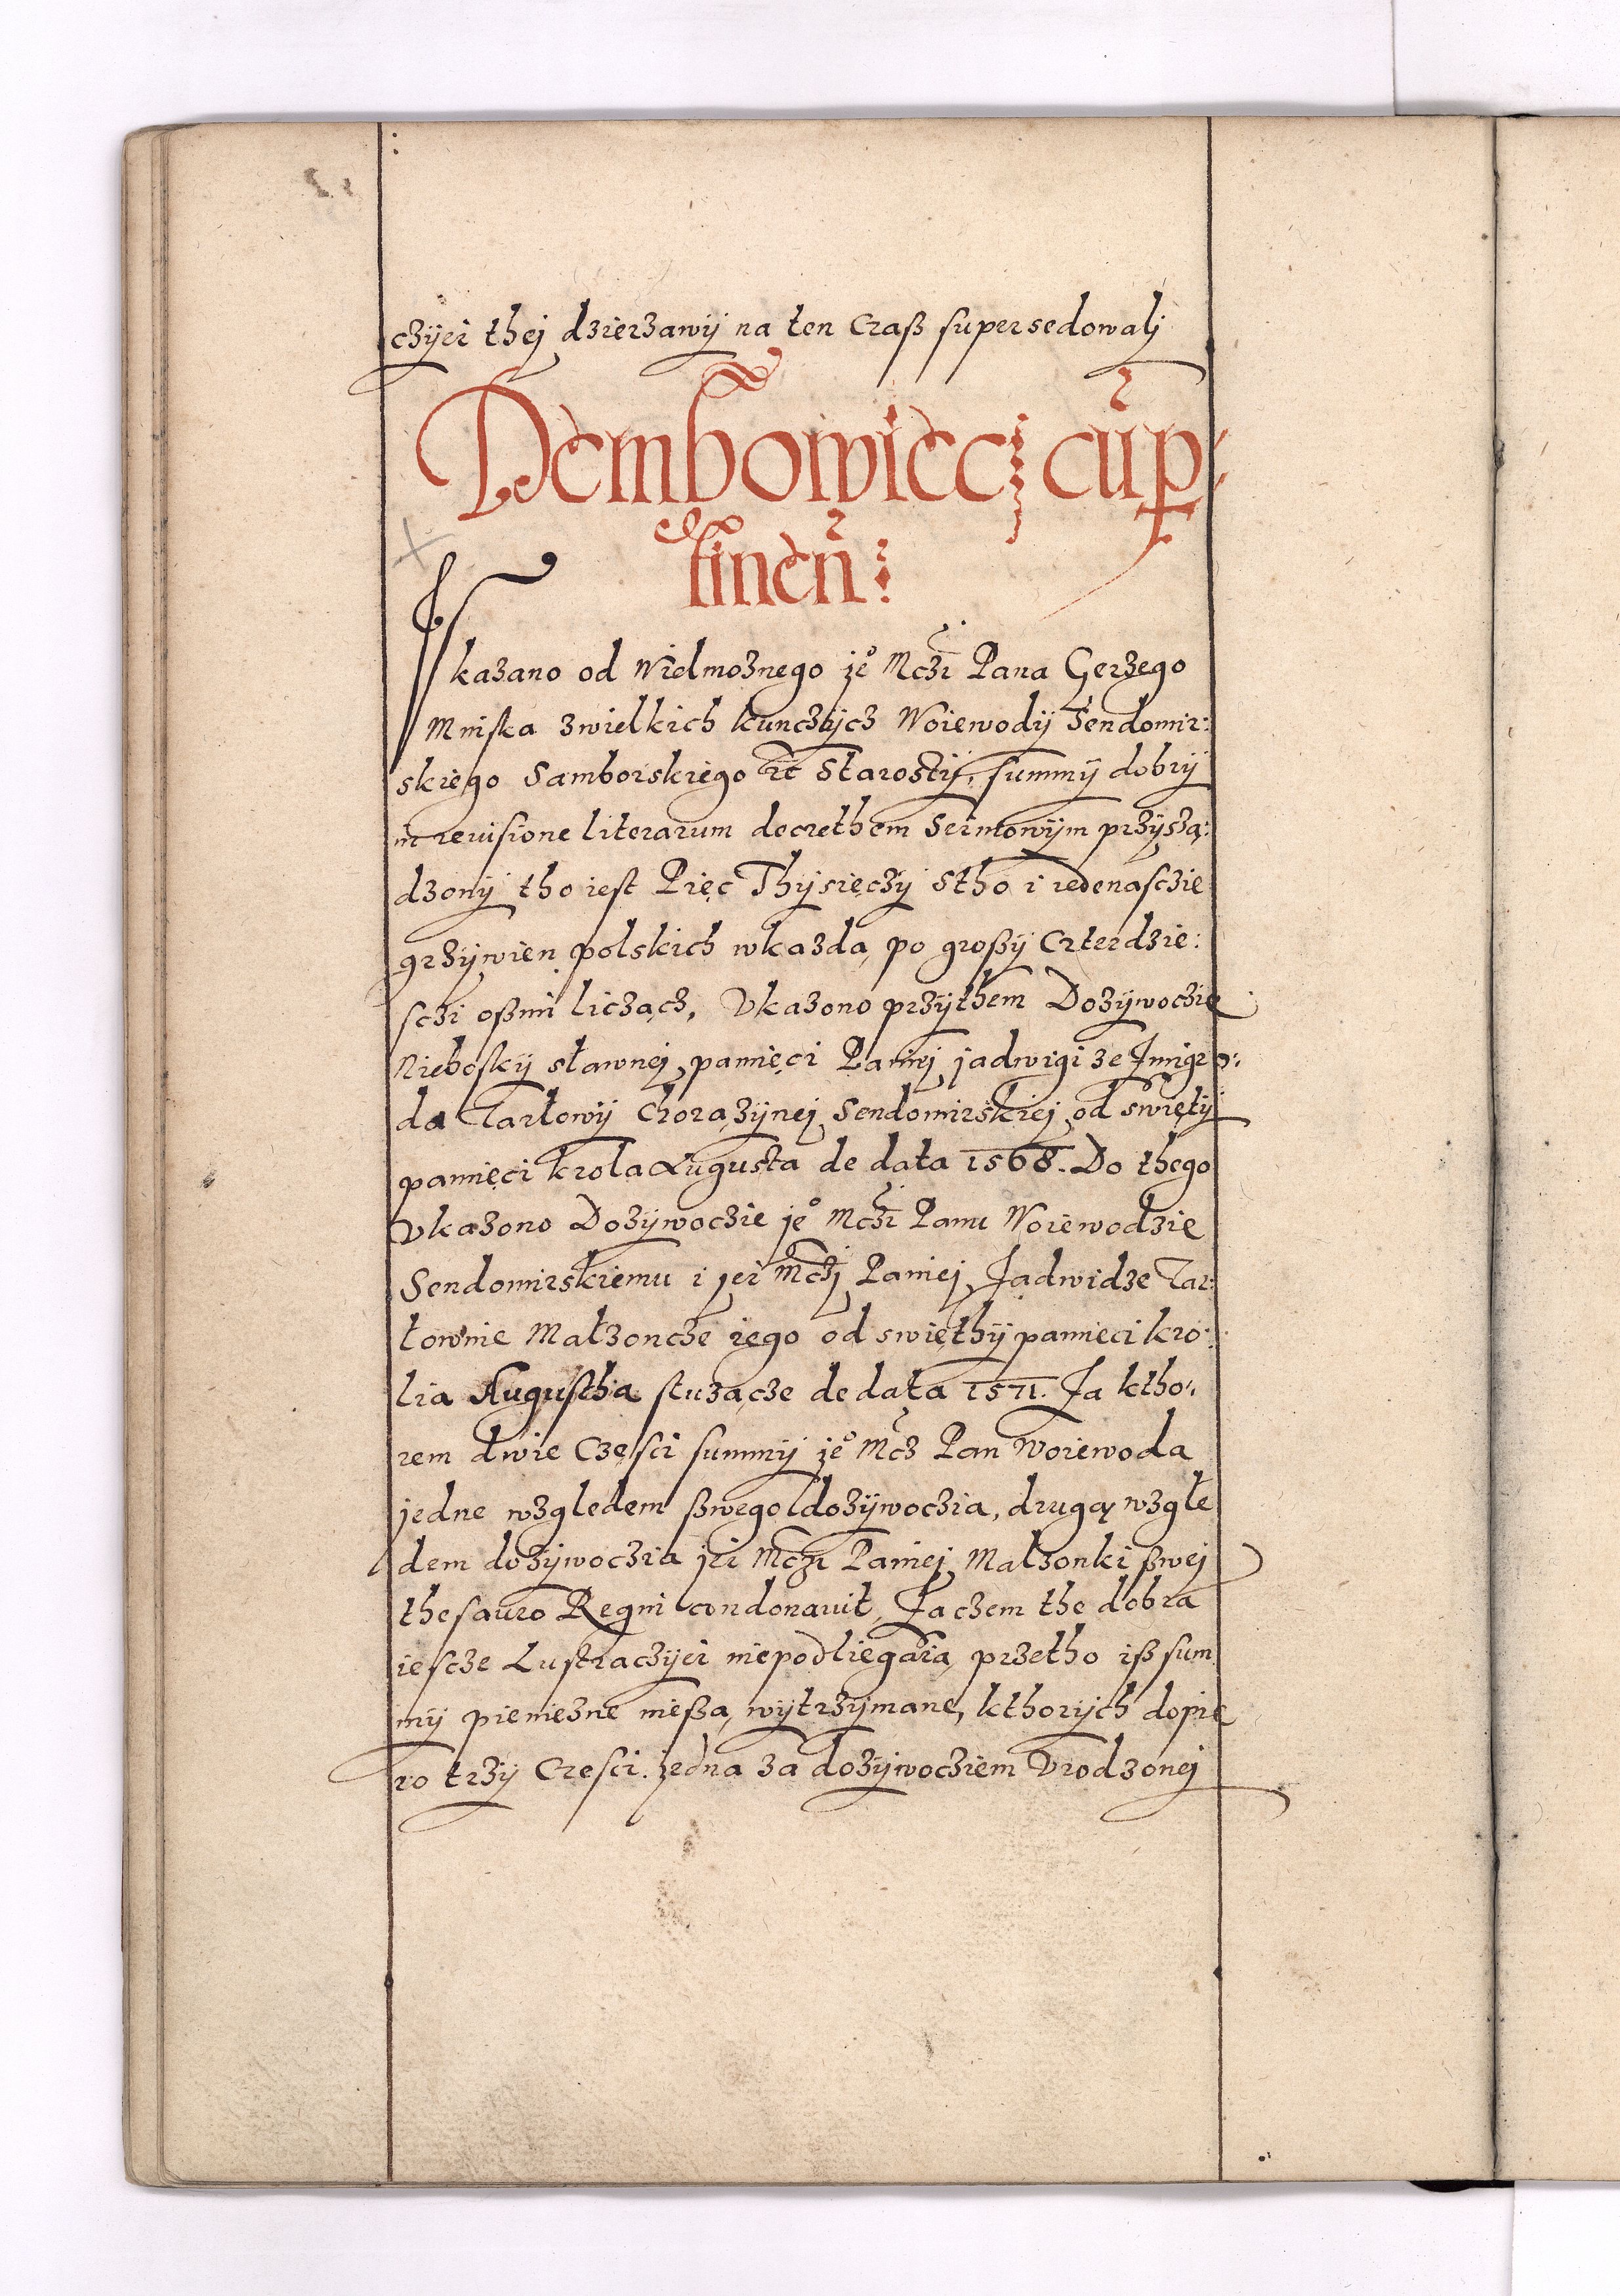 cżyei thej dzierżawÿ na ten Czaß supersedowalj
Dembowiecz cum p
tinen:
Vkazano od Wielmożnego je° Mczi Pana Gerzego
Mniska zwielkich kunczÿcz Woiewodÿ Sendomir:
skiego Samborskiego etc Starostÿ, summÿ dobrÿ
in revisione literarum decrethem Seimowÿm przÿszą:
dzonÿ tho iest Pięc Thÿsięczÿ Stho i iedenasczie
grzÿwien polskich wkażdą po großÿ Czterdzie:
sczi oßmi licząch, Vkazono przÿthem Dożÿwoczie
Nieboskÿ sławnej pamięci Paniej jadwigi ze Zmigro:
da Tarłowÿ Chorążÿnej Sendomirskiej od swiętÿ
pamięci krola Augusta de data 1568. Do thego
Vkazono Dożÿwoczie je° Mczi Panu Woiewodzie
Sendomirskiemu i jei Mczj Paniej Jadwidze Tar:
łownie Małżoncze iego od swięthÿ pamięci kro:
lia Augustha służącze de data 1571. Za ktho:
rem dwie Częsci summÿ je° Mcz Pan Woiewoda
jedne względem ßwego dożÿwoczia, drugą wzglę
dem dożÿwoczia jei Mczi Paniej Małżonki ßwej
thesauro Regni condonavit, Zaczem the dobra
iescze Lustraczÿei niepodliegaią, przetho iß sum
mÿ pieniężne nießą wÿtrzÿmane, kthorÿch dopie
ro trzÿ Częsci. jedna za dożÿwocziem Vrodzonej